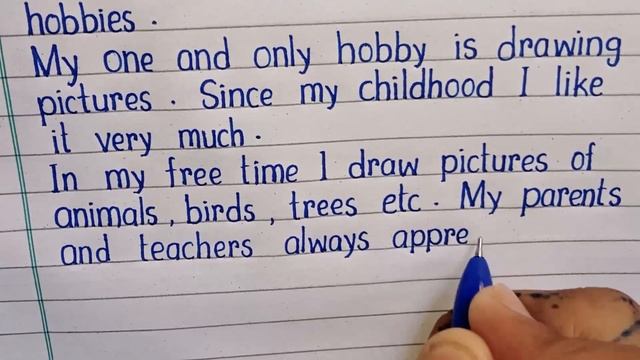 hobbies .
My one and only hobby is drawing
pictures . Since my childhood I like
it very much .
In my free time I draw pictures of
animals , birds , trees etc . My parents
and teachers always appre